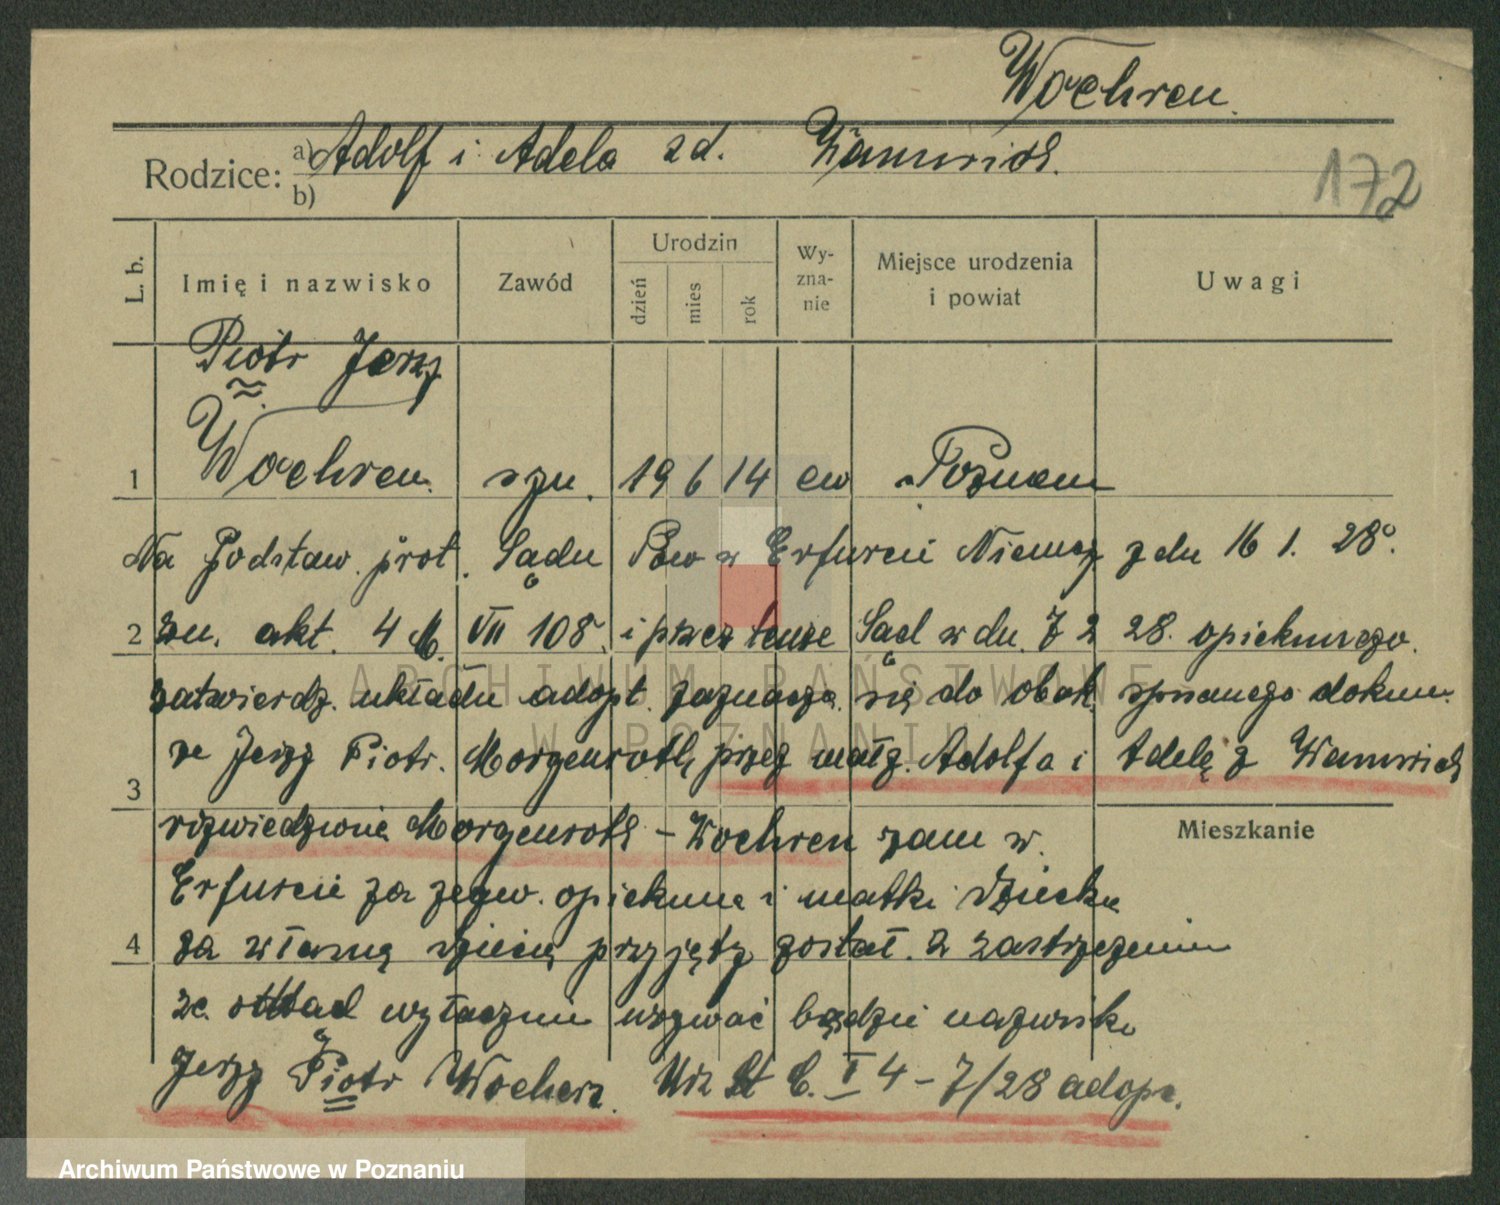 Wochren.
Rodzice: a) Adolf i Adela zd. Wannrich.
b)
172
L. b. Imię i nazwisko Zawód Urodzin dzień mies rok Wy-zna-nie Miejsce urodzenia i powiat Uwagi
Piotr Jerzy
1 Wochren. syn. 19 6 14 ew Poznan
Na Podstaw. prot. Sądu Pow w Erfurcie Niemcy z dn 16 1. 28.
2 zn. akt. 4 M. VII 108. i przez tenże Sąd w dn. 7 2 28. opiekunczo.
zatwierdz. układu adopt. zaznacza się do obok spisanego dokum.
ARCHIWUM PAŃSTWOWE
W POZNANIU
że Jerzy Piotr. Morgenroth, przez małż. Adolfa i Adelę z Wannrich
3 rozwiedzioną Morgenroth - Wochren zam w.
Mieszkanie
Erfurcie za zezw. opiekuna i matki dziecka
4 za własną dziecię przyjęty został. z zastrzeżeniem
że. odtąd wyłącznie używać będzie nazwisko
Jerzy Piotr Wochren. Urz St C. I 4 - 7/28 adopc.
Archiwum Państwowe w Poznaniu